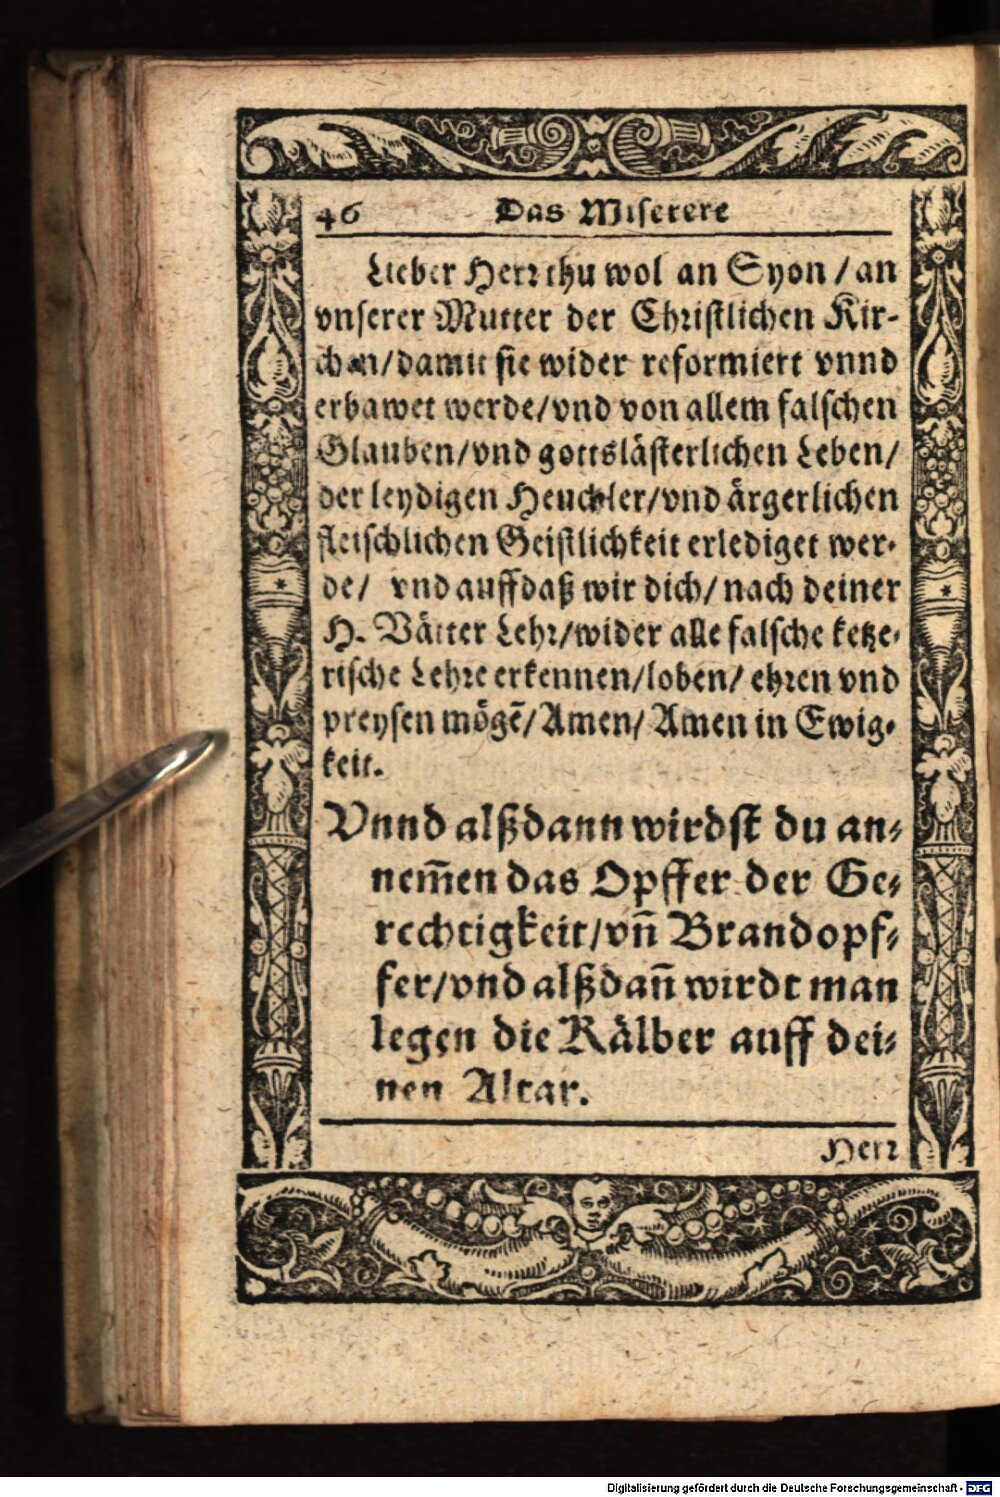 46 Das Miserere
Lieber Herr thu wol an Syon / an
vnserer Mutter der Christlichen Kir-
chen/damit sie wider reformiert vnnd
erbawet werde/vnd von allem falschen
Glauben/vnd gottslästerlichen Leben/
der leydigen Heuchler/vnd ärgerlichen
fleischlichen Geistlichkeit erlediget wer-
de/ vnd auffdaß wir dich/ nach deiner
H. Vätter Lehr/wider alle falsche ketze-
rische Lehre erkennen/loben/ ehren vnd
preysen mögẽ/Amen/ Amen in Ewig-
keit.
Vnnd alßdann wirdst du an-
nem̃en das Opffer der Ge-
rechtigkeit/vñ Brandopf-
fer/vnd alßdañ wirdt man
legen die Kälber auff dei-
nen Altar.
Herr
Digitalisierung gefördert durch die Deutsche Forschungsgemeinschaft - DFG